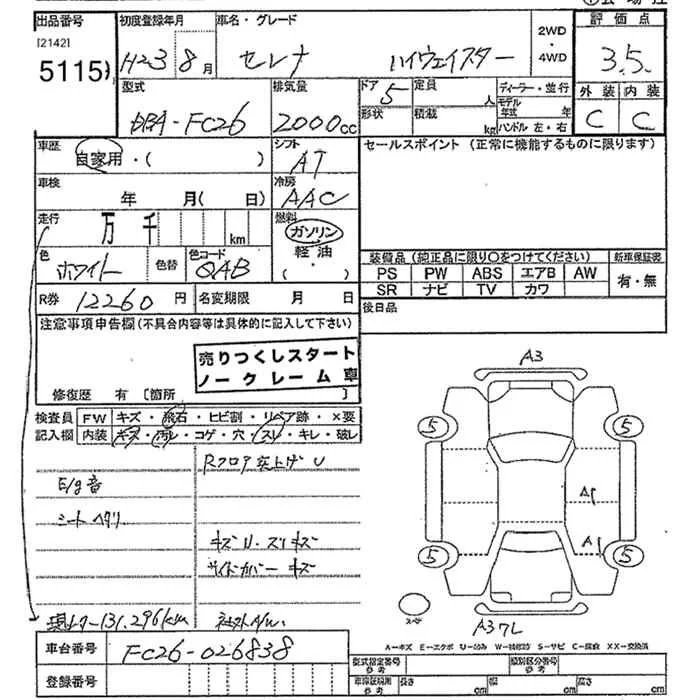 出品番号 初度登録年月 車名・グレード 2WD・4WD 評価点
[2142]
5115 H23 8月 セレナ ハイウェイスター 3.5
型式 排気量 ドア 5 定員 人 ディーラー・並行 外装 内装
DBA-FC26 2000cc 形状 積載 kg モデル年式 年 ハンドル 左・右 C C
車歴 自家用・( ) シフト AT セールスポイント (正常に機能するものに限ります)
車検 年 月( 日) 冷房 AAC
走行 万 千 km 燃料 ガソリン 軽油 ( ・ )
色 ホワイト 色替 色コード QAB
装備品 (純正品に限り○をつけてください) 新車保証書
PS PW ABS エアB AW 有・無
SR ナビ TV カワ
R券 12260円 名変期限 月 日 後日品
注意事項申告欄(不具合内容等は具体的に記入して下さい)
売りつくしスタート
ノークレーム 車
修復歴 有 [箇所 ]
検査員 FW キズ・飛石・ヒビ割・リペア跡・×要
記入欄 内装 キズ・汚れ・コゲ・穴・スレ・キレ・破レ
Rフロア突上げU
E/g音
シートヘタリ
キズU・スリキズ
サイドカバーキズ
現メータ131,296km 社外A/W
A3
5 5
A1
A1
5 5
スペア
A37L
A=キズ E=エクボ U=凹み W=補修跡 S=サビ C=腐食 XX=交換済
車台番号 FC26-026838
登録番号
型式指定番号 参考 類別区分番号 参考
車検証使用 参考 長さ cm 幅 cm 高さ cm